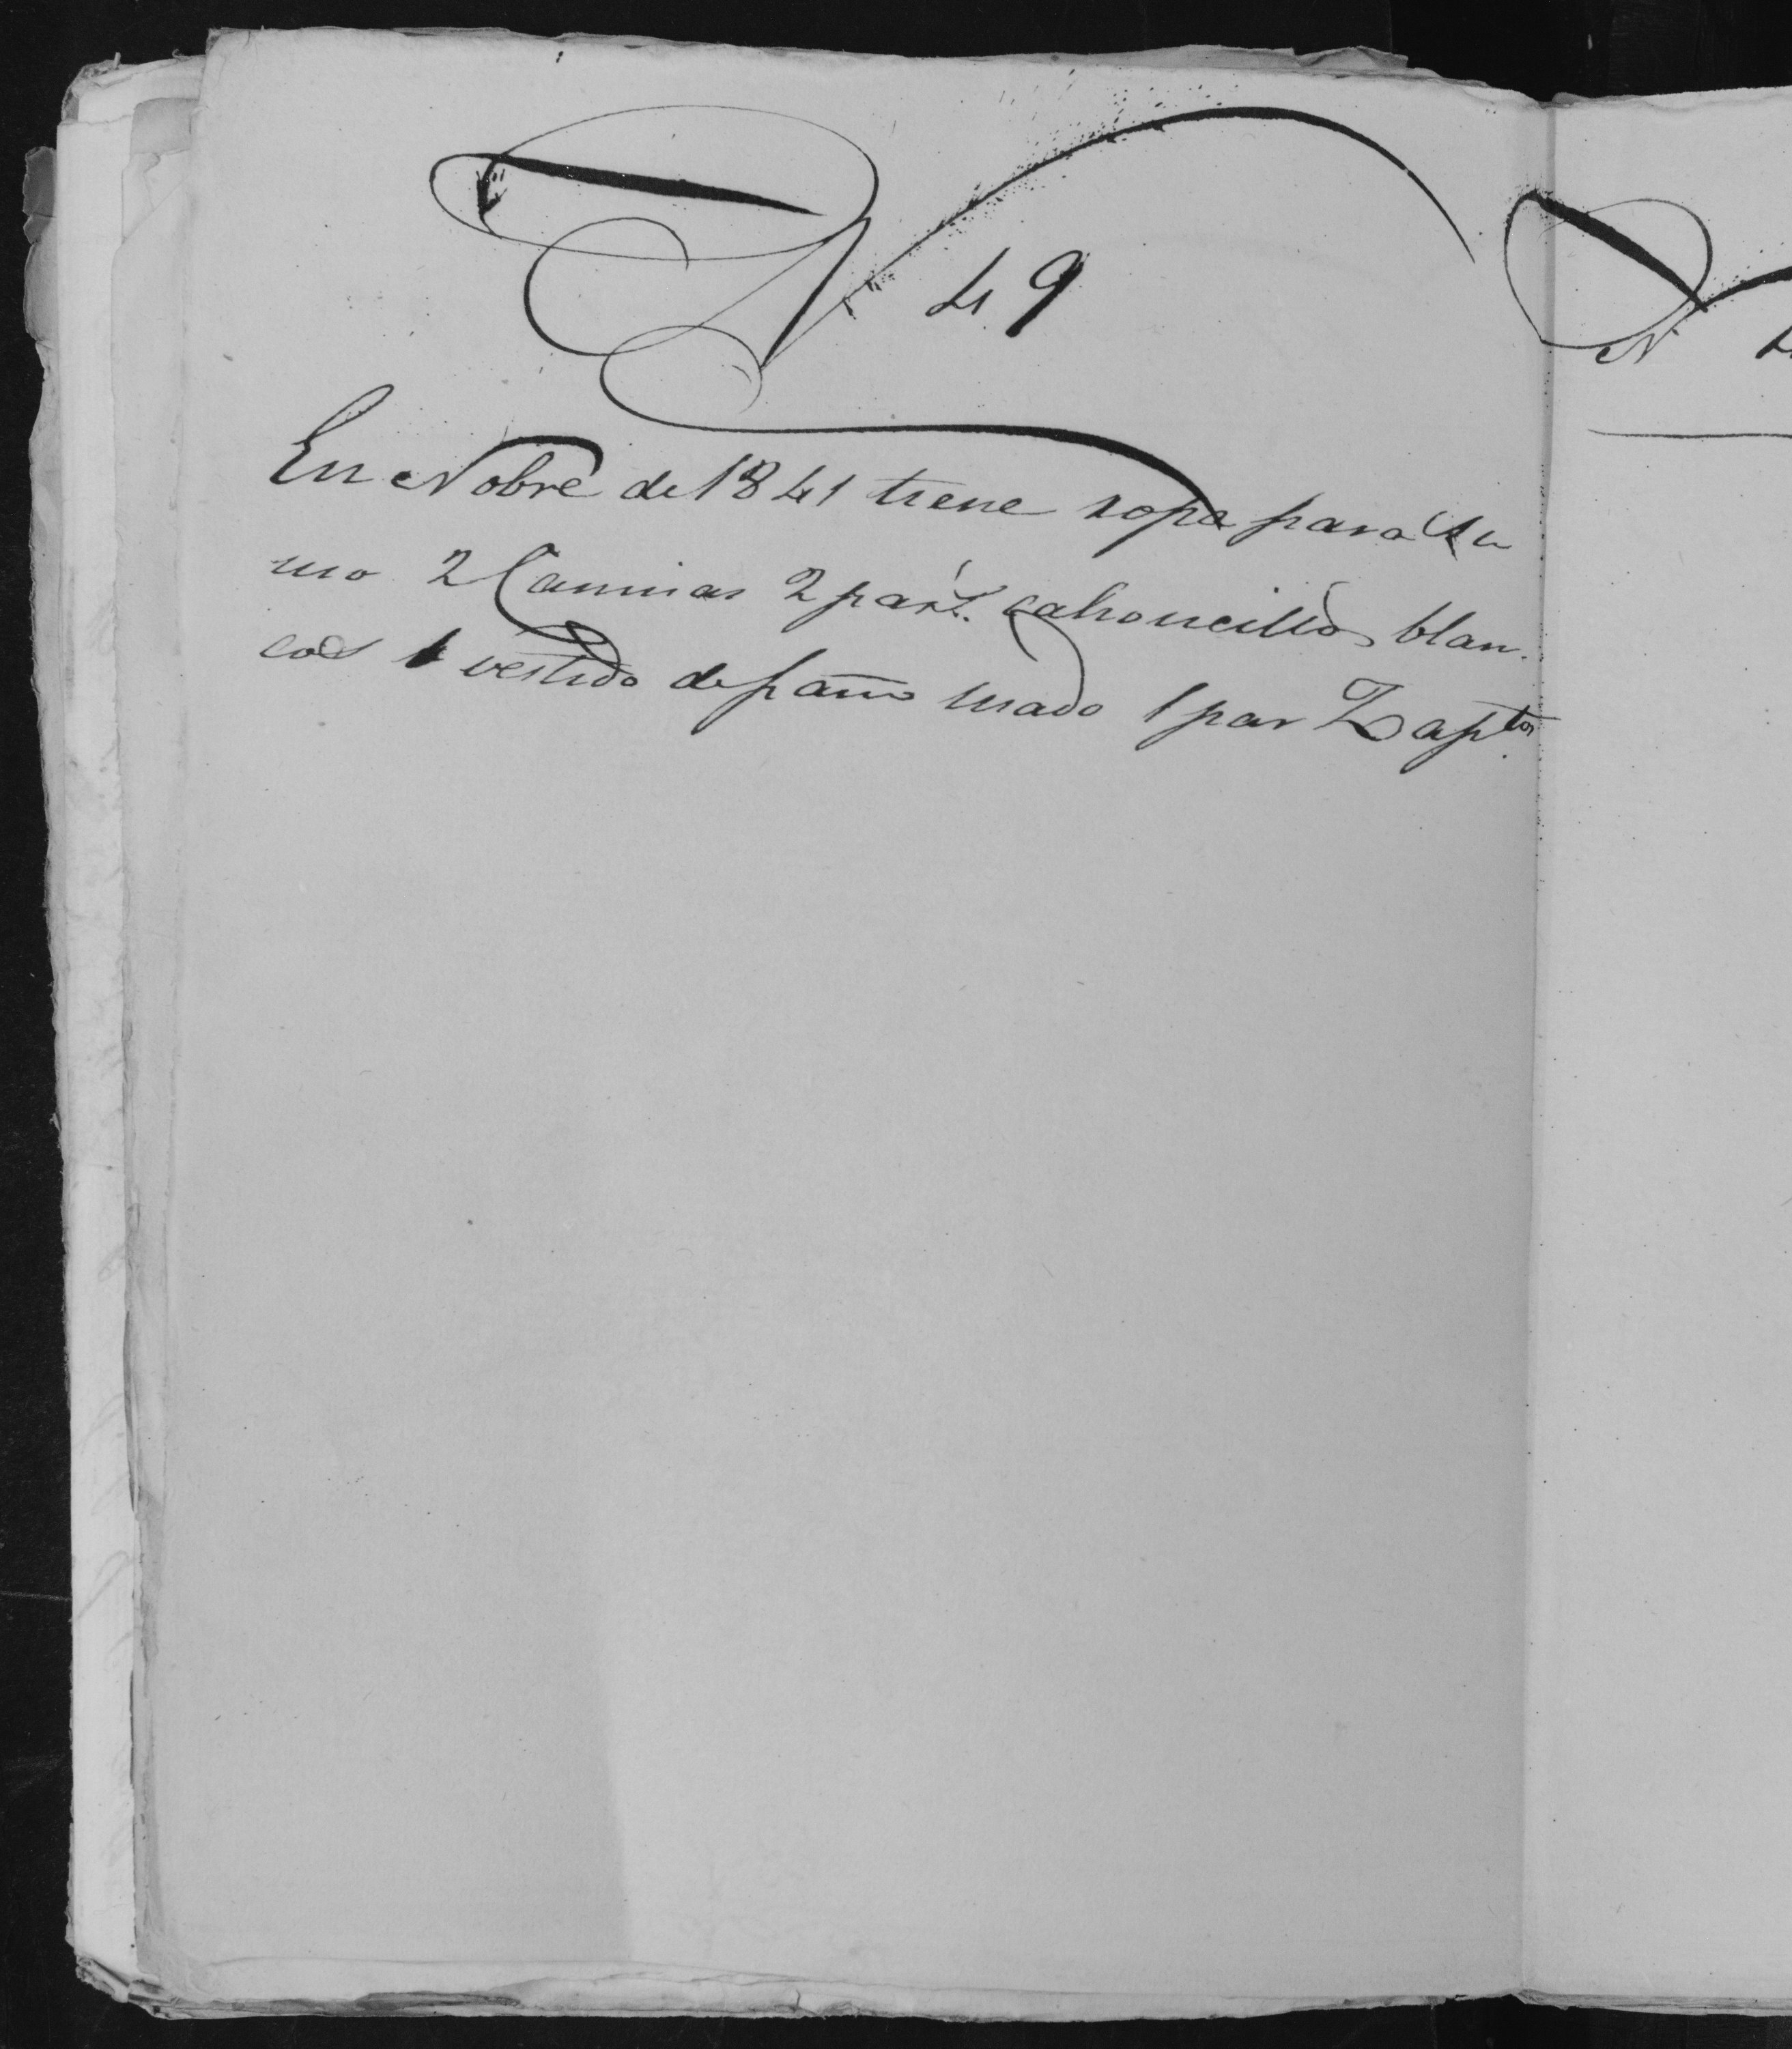 N 49
En Nobre de 1841 tiene ropa para su
uso 2 Camisas 2 par.s calsoncillos blan-
cos 1 vestido de paño usado 1 par Zap.tos
N